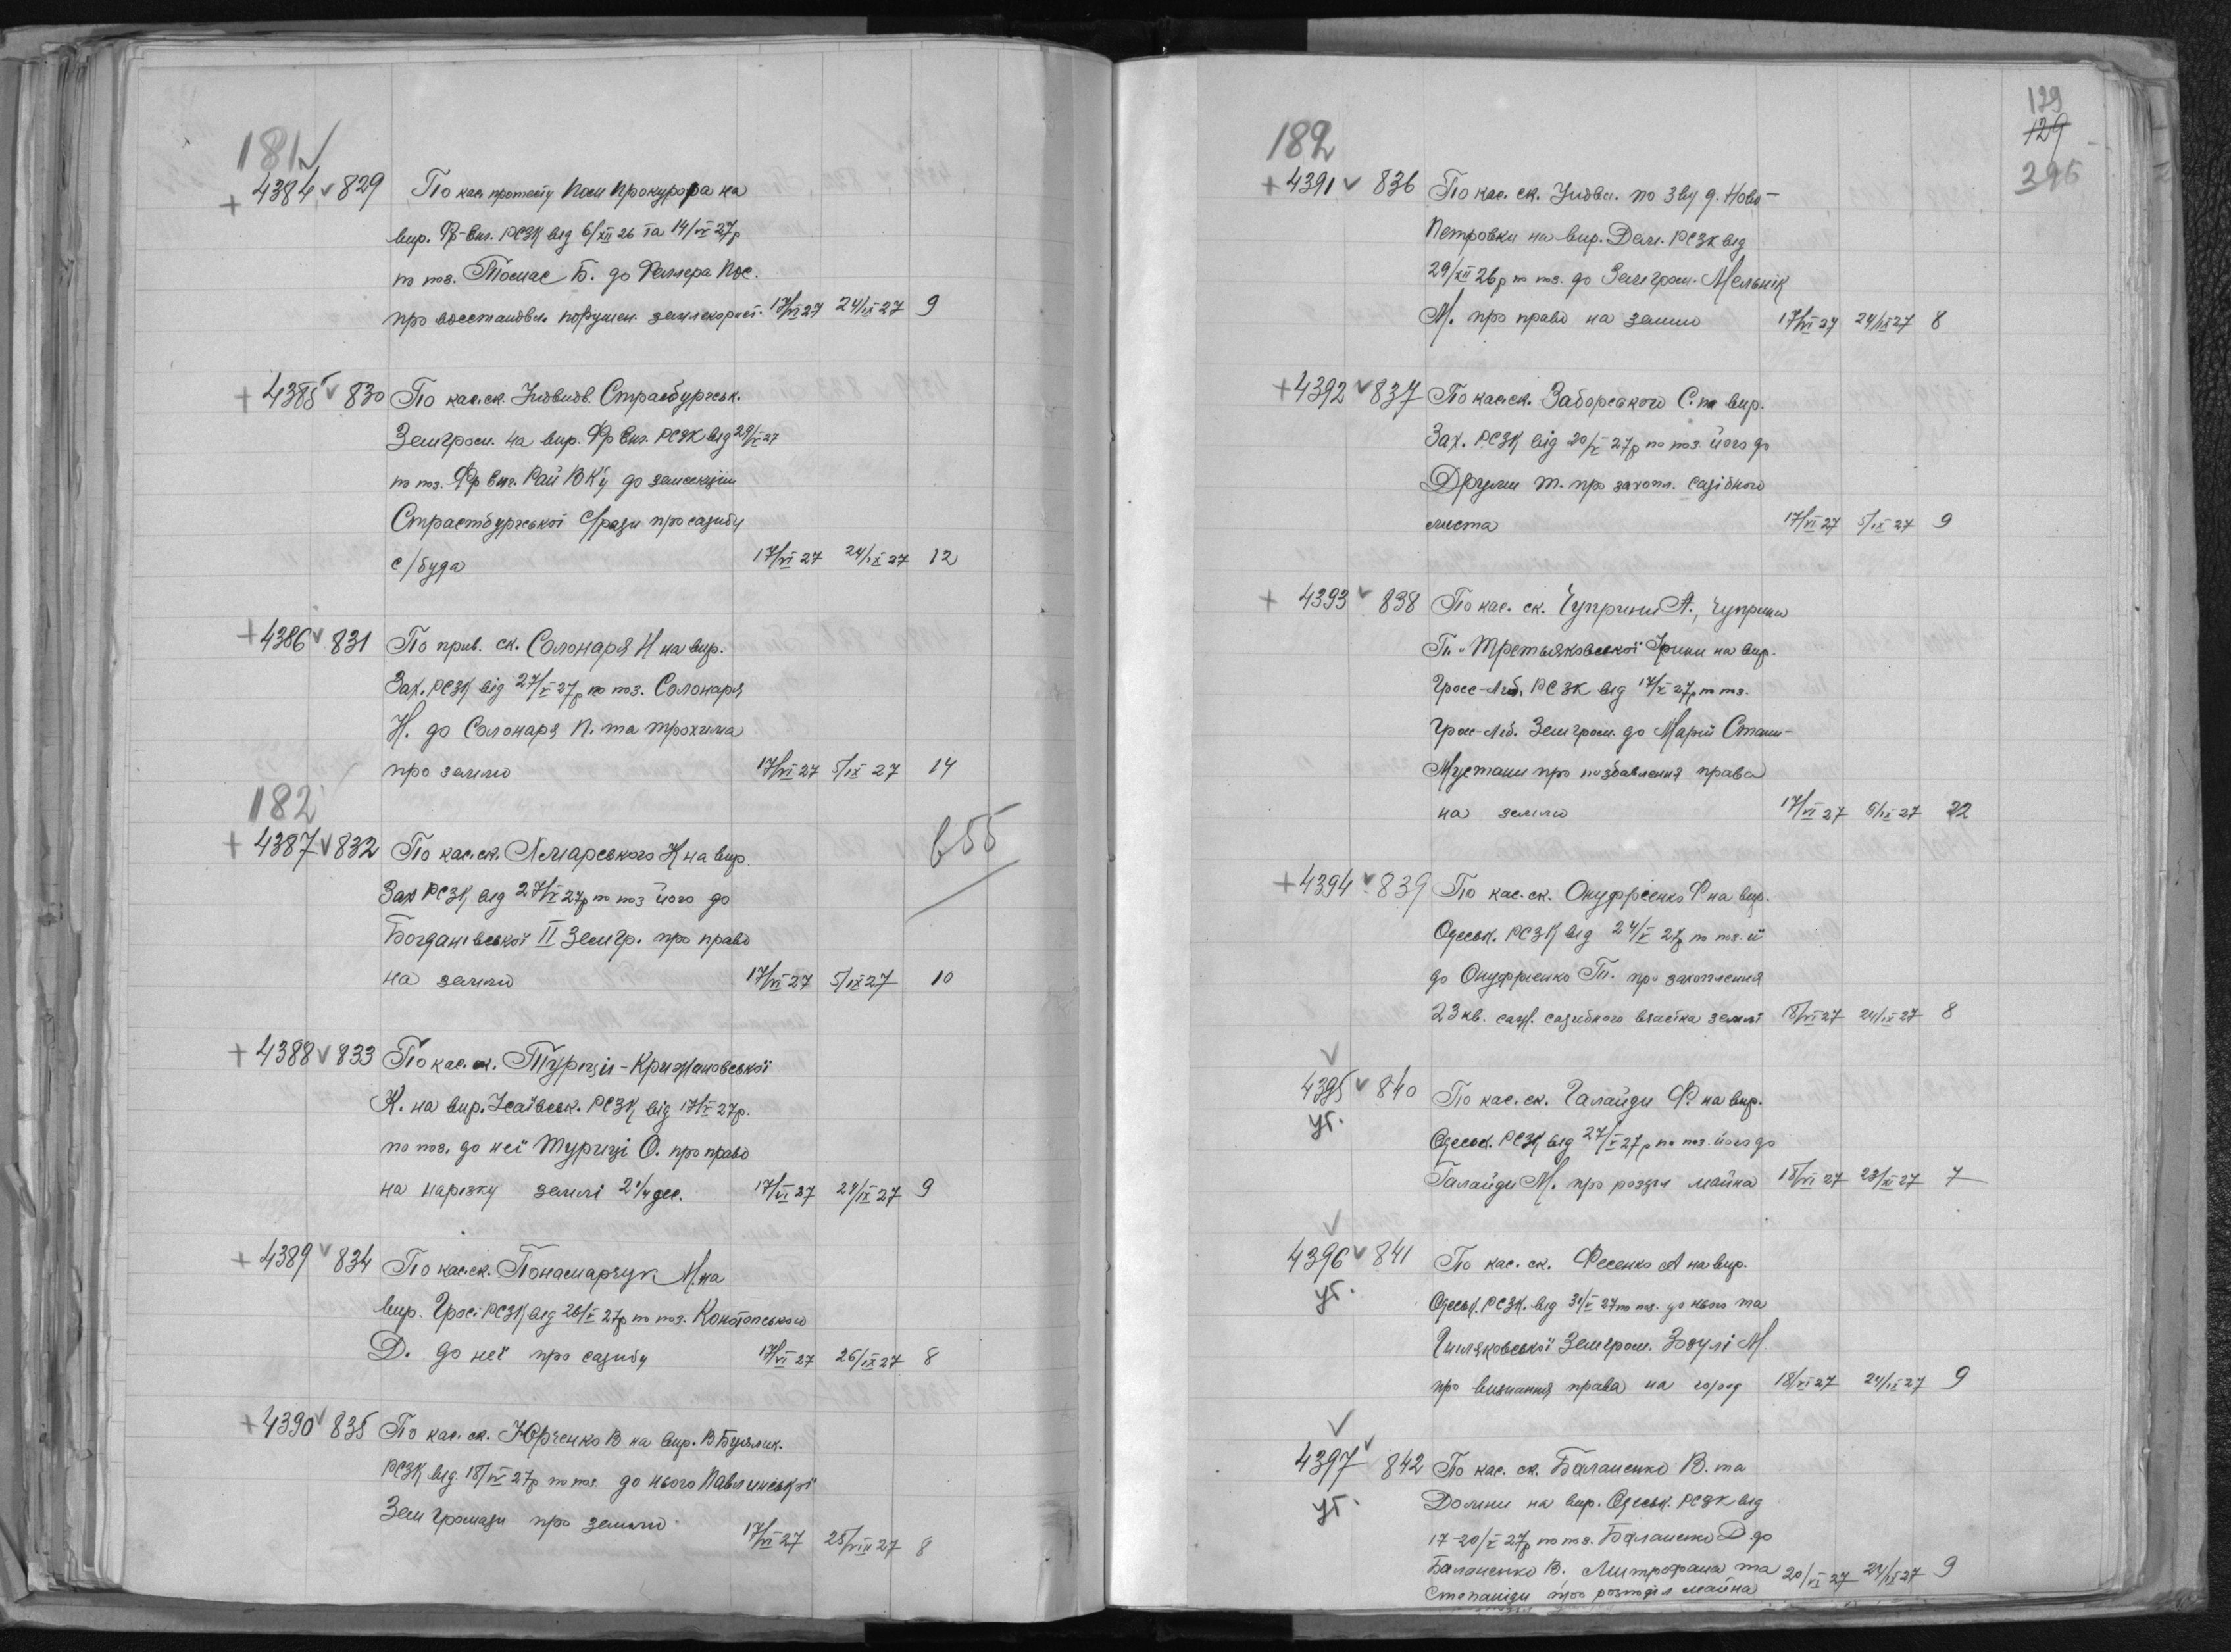 181
+ 4384 829 По кас. протесту Пом Прокурора на
вир. Фр-Евг. РСЗК від 6/XII 26 та 14/VI 27р
по поз. Томас Б. до Феллера Йос.
про восстановл. порушен. землекорист. 17/VI 27 24/IX 27 9
+ 4385 830 По кас. ск. Уповнов. Страсбургськ.
Земгром. на вир. Фр Евг. РСЗК від 29/V 27
по поз. Фр Евг. Рай ВК'у до земсекціи
Страстбургської с/ради про садибу
с/буда 17/VI 27 24/IX 27 12
+ 4386 831 По прив. ск. Солонаря Н на вир.
Зах. РСЗК від 27/V 27р по поз. Солонаря
Н. до Солонаря П. та Трохима
про землю 17/VI 27 5/IX 27 14
182
+ 4387 832 По кас. ск. К на вир. 655
Зах РСЗК від 27/V 27р по поз його до
Богданівської II Земгр. про право
на землю 17/VI 27 5/IX 27 10
+ 4388 833 По кас. ск. Туриці-Крижановської
К. на вир. Ісаївськ. РСЗК від 17/V 27р.
по поз. до неї Туриці О. про право
на нарезку землі 2 1/4 дес. 17/VI 27 24/IX 27 9
+ 4389 834 По кас. ск. Понамарчук М. на
вир. Грос. РСЗК від 26/V 27р по поз. Конотопського
Д. до неї про садибу 17/VI 27 26/IX 27 8
+ 4390 835 По кас. ск. Юрченко В на вир. В Буялик.
РСЗК від 18/IV 27р по поз. до нього Павлинської
Зем Громади про землю 17/VI 27 25/VIII 27 8
129
129
296
182
+ 4391 836 По кас. ск. Уповн. по Зву д. Ново-
Петровки на вир. РСЗК від
29/XII 26р по поз. до Земгром. Мельнік
М. про право на землю 17/VI 27 24/IX 27 8
+ 4392 837 По кас. ск. Заборського С. на вир.
Зах. РСЗК від 20/V 27р по поз. його до
Т. про захопл. садібного
места 17/VI 27 5/IX 27 9
+ 4393 838 По кас. ск. Чуприни А., Чуприни
П. и Третьяковської Ірини на вир.
Гросс-Ліб. РСЗК від 17/V 27р по поз.
Грос-Ліб. Земгром. до Марії Стани-
Мустани про позбавлення права
на землю 17/VI 27 5/IX 27 22
+ 4394 839 По кас. ск. Онуфрієнко Ф на вир.
Одеськ. РСЗК від 24/V 27р по поз. її
до Онуфрієнко П. про захоплення
23 кв. саж. садибного вчастка землі 18/VI 27 24/IX 27 8
4395 840 По кас. ск. Галайди Ф. на вир.
уг. Одеськ. РСЗК від 27/V 27р по поз. його до
Галайди М. про розділ майна 18/VI 27 23/XI 27 7
4396 841 По кас. ск. Фесенко А на вир.
уг. Одеськ. РСЗК. від 31/V 27 по поз. до нього та
Гниляковської Земгром. Зозулі М.
про визнання права на город 18/VI 27 24/IX 27 9
4397 842 По кас. ск. Баланенко В. та
уг. Домни на вир. Одеськ. РСЗК від
17-20/V 27р по поз. Баланенко Д. до
Баланенко В. Митрофана та 20/VI 27 24/IX 27 9
Степаніди про розподіл майна